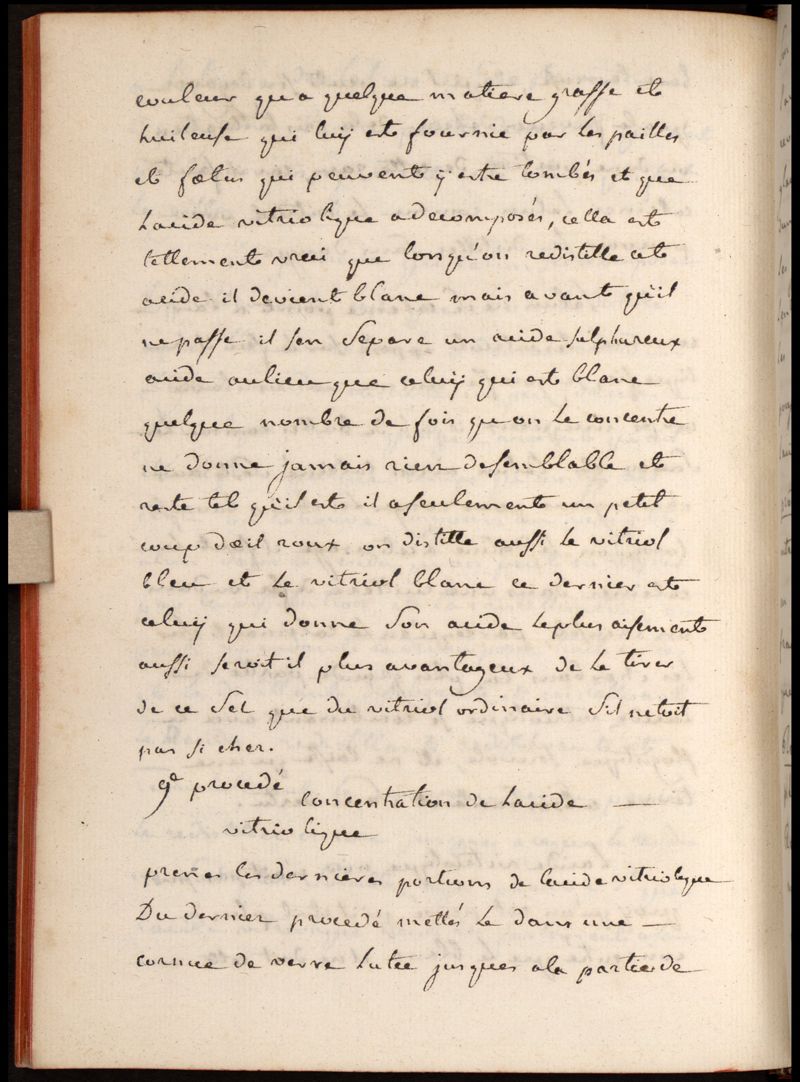 couleur qu a quelque matiere grasse et
huileuse qui luij est fournie par les pailles
et fœtus qui peuvent ÿ estre tombés et que
Lacide vitriolique a decomposés, cella est
tellement vrai que lorsqu'on redistille cet
acide il devient blanc mais avant qu'il
ne passe il sen Separe un acide sulphureux
acide aulieu que celuij qui est blanc
quelque nombre de fois qu on Le concentre
ne donne jamais rien desemblable et
reste tel qu'il est il aseulement un petit
coup dœil roux on distille aussi Le vitriol
bleu et Le vitriol blanc ce dernier est
celuij qui donne Son acide Leplus aisement
aussi seroit il plus avantageux de Le tirer
de ce Sel que du vitriol ordinaire Sil netoit
pas si cher.
9e procedé
Concentration de Lacide —
vitriolique
prenes les dernieres portions de lacide vitriolique
Du dernier procedé mettés Le dans une —
cornue de verre Lutée jusques ala partie de